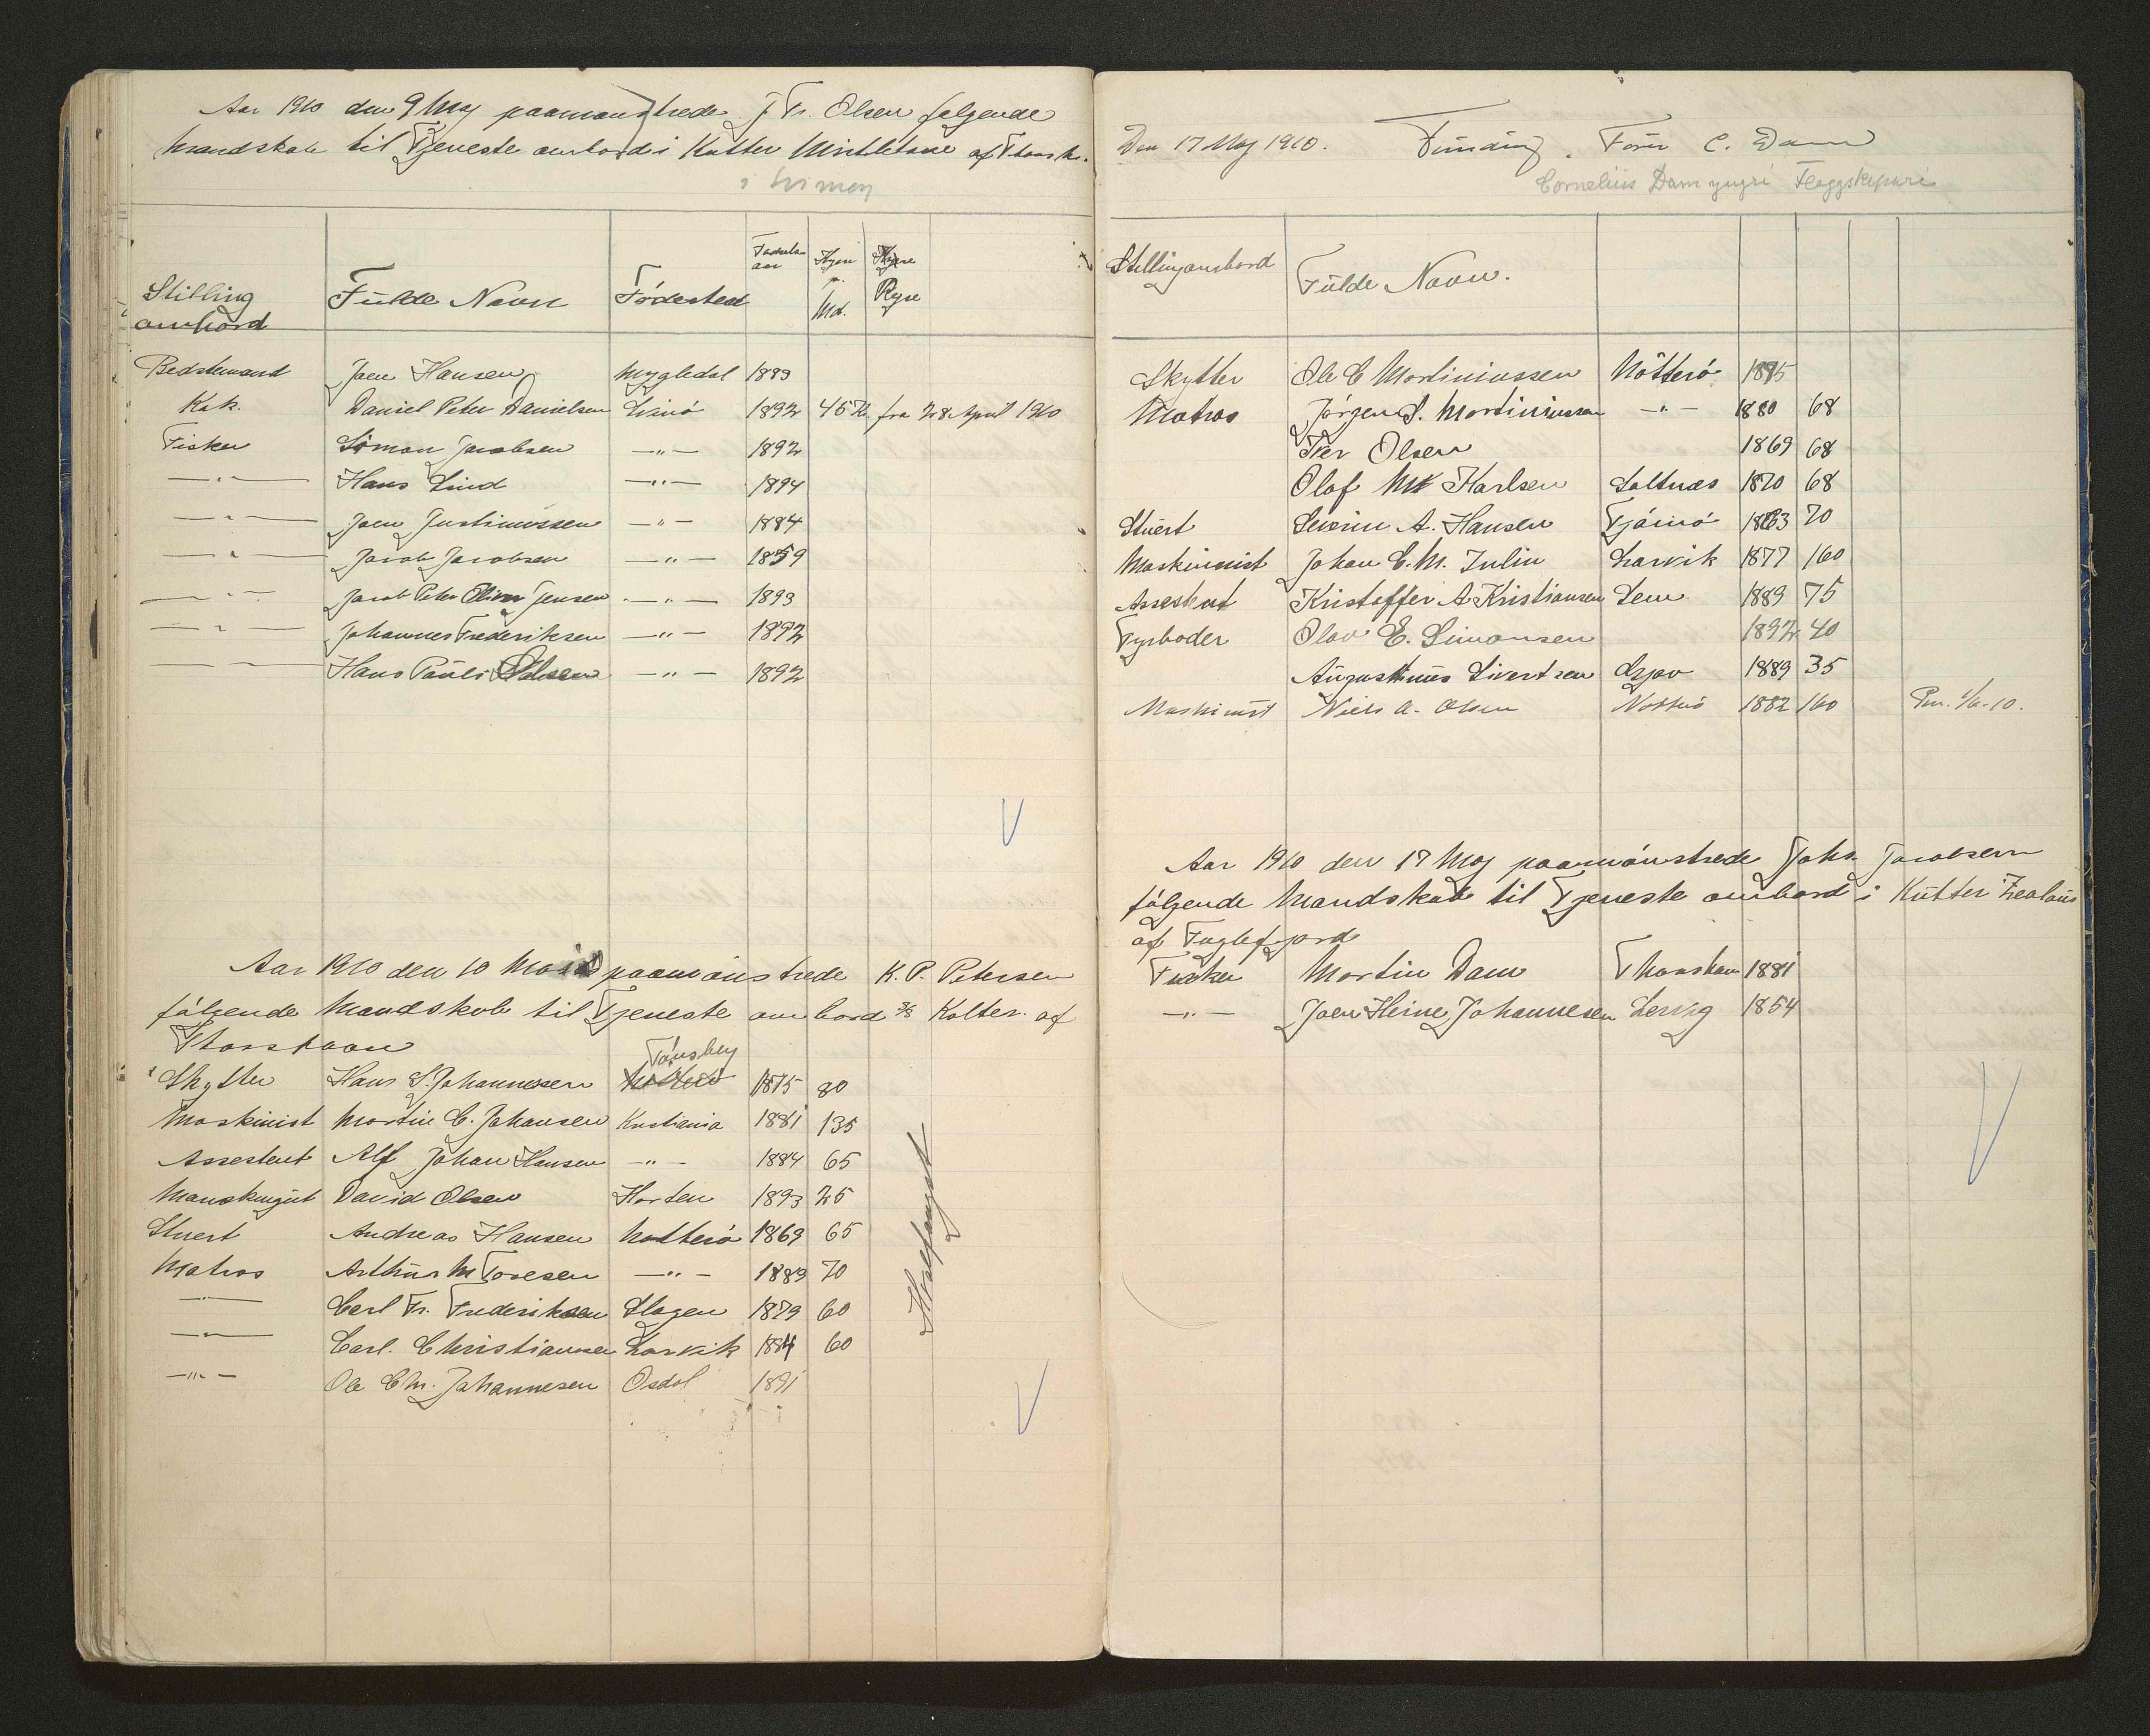 Aar 1910 den 9 Maj paamønstrede J Fr. Olsen følgende
Mandskab til Tjeneste ombord i Kutter Misttletone af Thorsh.
Stilling ombord Fulde Navn Fødested Fødselsaar Hyre pr. Md. Hyre Rejse
Bedstemand Joen Hansen Mygledal 1889
Kok. Daniel Peter Danielsen Svinø 1892 45 Kr. fra 28 April 1910
Fisker Simon Jacobsen —"— 1892
—"— Hans Lind —"— 1894
—"— Joen Justinussen —"— 1884
—"— Jacob Jacobsen —"— 1859
—"— Jacob Peter Oliver Jensen —"— 1893
—"— Johannes Frederiksen —"— 1892
—"— Hans Pauli —"— 1892
Aar 1910 den 10 Mai paamønstrede K. P. Petersen
følgende Mandskab til Tjeneste ombord Kolter. af
Thorshavn
Skytter Hans S. Johannessen Tønsberg 1875 80
Maskinist Martin C. Johansen Kristiania 1881 135
Assestent Alf Johan Hansen —"— 1884 65
David Olsen Horten 1893 25
Stuert Andreas Hansen Nøtterø 1869 65
Matros Arthur M Toresen —"— 1889 70
—"— Carl Fr. Frederiksen Slagen 1879 60
—"— Carl. Christiansen Larvik 1884 60
—"— Ole Chr. Johannesen Osdal 1891
Hvalfangst
Den 17 Maj 1910. Funding. Fører C. Dam
Cornelius Dam yngri Fløggskipari
Stilling ombord Fulde Navn.
Skytter Ole C Martiniussen Nøtterø 1875
Matros Jørgen S. Martiniussen —"— 1880 68
Iver Olsen 1869 68
Olaf Karlsen Saltnæs 1870 68
Stuert Severin A. Hansen Tjømø 1863 70
Maskinist Johan C. M. Julin Larvik 1877 160
Assestent Kristoffer A Kristiansen Sem 1889 75
Fyrbøder Olav E. Simonsen 1892 40
Augustinus Sivertsen 1889 35
Maskinist Niels A. Olsen Nøtterø 1882 160 Pm. 1/6-10.
Aar 1910 den 17 Maj paamønstrede Johs. Jacobsen
følgende Mandskab til Tjeneste ombord i Kutter Zealous
af Fuglefjord
Fisker Martin Dam Thorshavn 1881
—"— Joen Heine Johannesen Lervig 1854